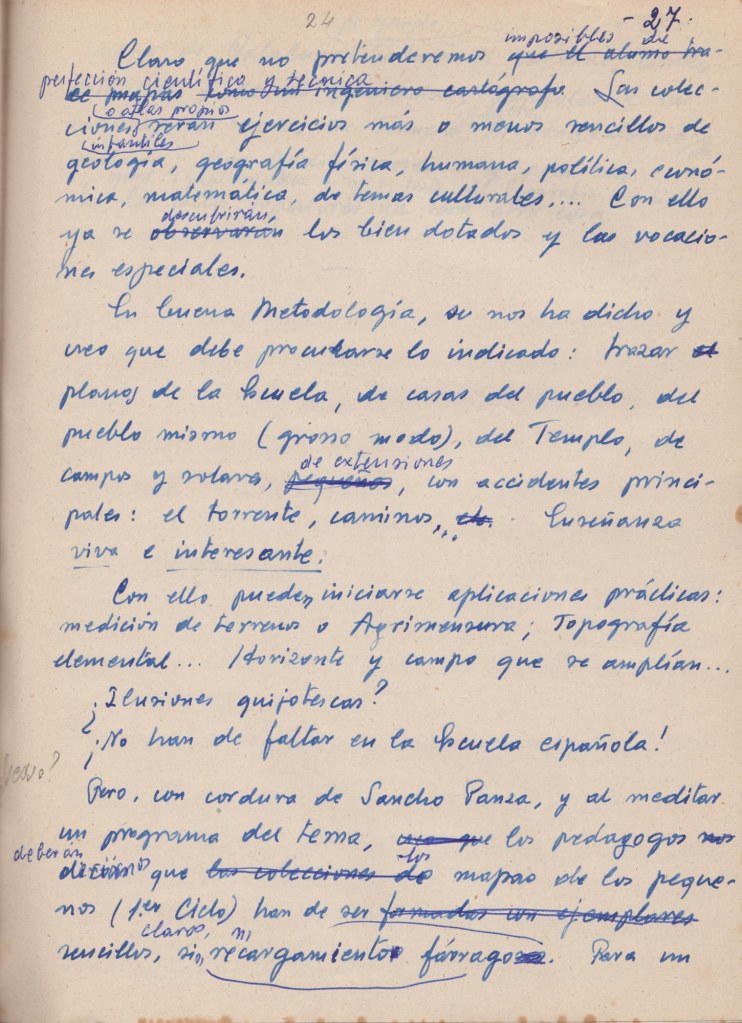 24
- 27.
imposibles de
Claro que no pretenderemos que el alumno tra-
perfección científica y técnica
ce mapas como un ingeniero cartógrafo. Las colec-
o atlas propios
ciones serán ejercicios más o menos sencillos de
infantiles
geología, geografía física, humana, política, econó-
mica, matemática, de temas culturales,... Con ello
descubrirán
ya se observarán los bien dotados y las vocacio-
nes especiales.
En buena Metodología, se nos ha dicho y
creo que debe procurarse lo indicado: trazar el
planos de la Escuela, de casas del pueblo, del
pueblo mismo (grosso modo), del Templo, de
de extensiones
campos y solares, pequeños, con accidentes princi-
pales: el torrente, caminos,... etc. Enseñanza
viva e interesante.
Con ello pueden iniciarse aplicaciones prácticas:
medición de terrenos o Agrimensura; Topografía
elemental... Horizonte y campo que se amplían...
¿Ilusiones quijotescas?
¡No han de faltar en la Escuela española!
Pero, con cordura de Sancho Panza, y al meditar
un programa del tema, creo que los pedagogos nos
deberán decirnos que las colecciones de los mapas de los peque-
ños (1.er Ciclo) han de ser formadas con ejemplares
claros, ni
sencillos, sin recargamiento fárragos. Para un